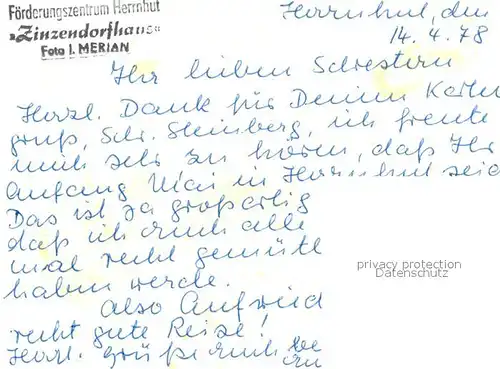 Förderungszentrum Herrnhut
»Zinzendorfhaus«
Foto I. MERIAN
Herrnhut, den
14. 4. 78
Ihr lieben Schwestern
Herzl. Dank für Deinen Karten
gruß, Schr. Steinberg, ich freute
mich sehr zu hören, daß Ihr
Anfang Mai in Herrnhut seid
Das ist ja großartig
daß ich euch alle
mal recht gemütl
haben werde.
Also Aufwied
recht gute Reise!
Herzl. Grüße euch
privacy protection
Datenschutz